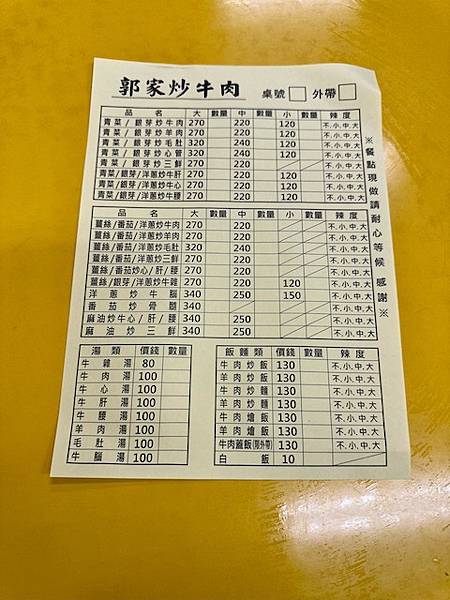 郭家炒牛肉 桌號 外帶
品名 大 數量 中 數量 小 數量 辣度
青菜/銀芽炒牛肉 270 220 120 不.小.中.大
青菜/銀芽炒羊肉 270 220 120 不.小.中.大
青菜/銀芽炒毛肚 320 240 120 不.小.中.大
青菜/銀芽炒心管 320 240 120 不.小.中.大
青菜/銀芽炒三鮮 270 220 不.小.中.大
青菜/銀芽/洋蔥炒牛肝 270 220 120 不.小.中.大
青菜/銀芽/洋蔥炒牛心 270 220 120 不.小.中.大
青菜/銀芽/洋蔥炒牛腰 270 220 120 不.小.中.大
品名 大 數量 中 數量 小 數量 辣度
薑絲/番茄/洋蔥炒牛肉 270 220 不.小.中.大
薑絲/番茄/洋蔥炒羊肉 270 220 不.小.中.大
薑絲/番茄/洋蔥炒毛肚 320 240 不.小.中.大
薑絲/番茄/洋蔥炒三鮮 270 220 不.小.中.大
薑絲/番茄炒心/肝/腰 270 220 不.小.中.大
薑絲/銀芽/洋蔥炒牛雜 270 220 120 不.小.中.大
洋蔥炒牛腦 340 250 150 不.小.中.大
番茄炒骨髓 340 不.小.中.大
麻油炒牛心/肝/腰 340 250 不.小.中.大
麻油炒三鮮 340 250 不.小.中.大
※餐點現做請耐心等候 感謝※
湯類 價錢 數量
牛雜湯 80
牛肉湯 100
牛心湯 100
牛肝湯 100
牛腰湯 100
羊肉湯 100
毛肚湯 100
牛腦湯 100
飯麵類 價錢 數量 辣度
牛肉炒飯 130 不.小.中.大
羊肉炒飯 130 不.小.中.大
牛肉炒麵 130 不.小.中.大
羊肉炒麵 130 不.小.中.大
牛肉燴飯 130 不.小.中.大
羊肉燴飯 130 不.小.中.大
牛肉蓋飯(限外帶) 130 不.小.中.大
白飯 10